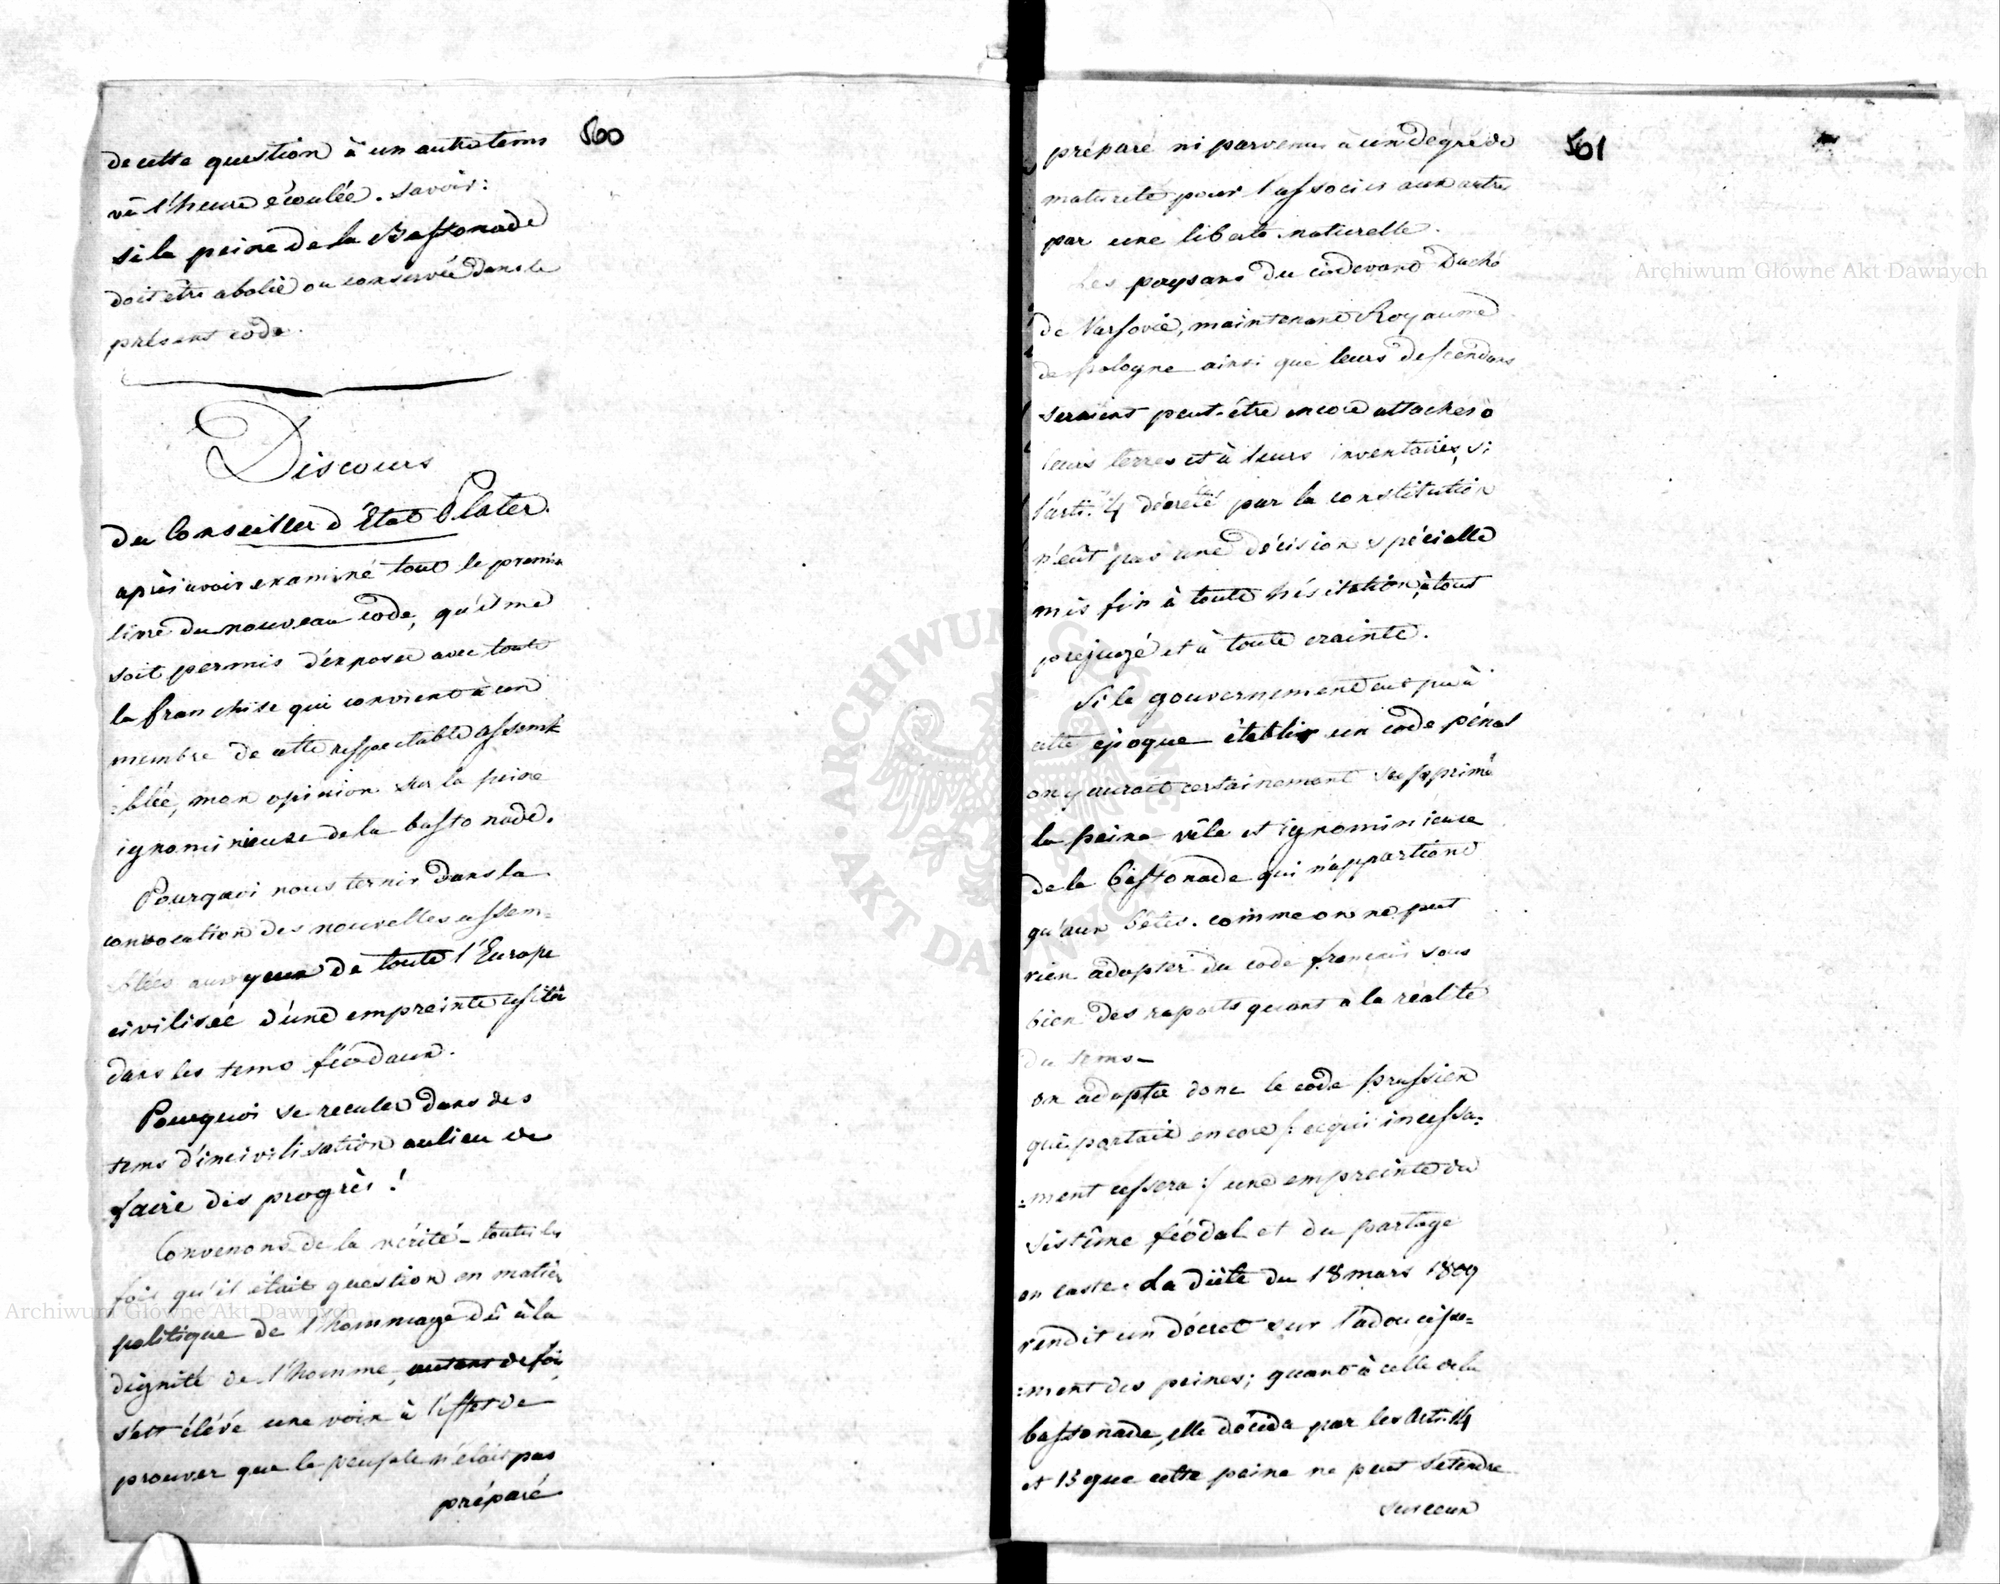 560
de cette question à un autre tems
vû l'heure écoulée. savoir:
si la peine de la Bastonade
doit être abolie ou conservée dans le
présent code.
Discours
du Conseiller d'État Plater.
après avoir examiné tout le premier
livre du nouveau code, qu'il me
soit permis d'exposer avec toute
la franchise qui convient à un
membre de cette respectable assem-
-blée, mon opinion sur la peine
ignominieuse de la bastonade.
Pourquoi nous ternir dans la
convocation des nouvelles assem-
blées aux yeux de toute l'Europe
civilisée d'une empreinte usitée
dans les tems féodaux.
Pourquoi se reculer dans des
tems d'incivilisation au lieu de
faire des progrès!
Convenons de la vérité - toutes les
fois qu'il était question en matière
politique de l'hommage dû à la
dignité de l'homme, autant de fois
s'est élévé une voix à l'effet de
prouver que le peuple n'était pas
préparé
561
préparé ni parvenu à un dégré de
maturité pour l'associer aux autres
par une liberté naturelle.
Les paysans du cidevant Duché
de Varsovie, maintenant Royaume
de Pologne ainsi que leurs descendans
seraient peut-être encore attachés à
leurs terres et à leurs inventaires, si
l'arti. 4 décreté par la constitution
n'eût pas une décision spécielle
mis fin à toute hésitation, à tout
préjugé et à toute crainte.
Si le gouvernement eut pu à
cette époque établir un code pénal
on y aurait certainement supprimé
la peine vile et ignominieuse
de la bastonade qui n'appartient
qu'aux bêtes. comme on ne peut
rien adopter du code francais sous
bien des raports quant à la réalité
du tems -
on adopta donc le code prussien
qui portait encore /: ce qui incessa-
-ment cessera :/ une empreinte du
sistême féodal et du partage
en caste. La diète du 18 mars 1809
rendit un décret sur l'adoucisse-
-ment des peines; quant à celle de la
bastonade, elle décida par les Arti. 14
et 15 que cette peine ne peut s'etendre
sur ceux
Archiwum Główne Akt Dawnych
Archiwum Główne Akt Dawnych
ARCHIWUM GŁÓWNE AKT DAWNYCH